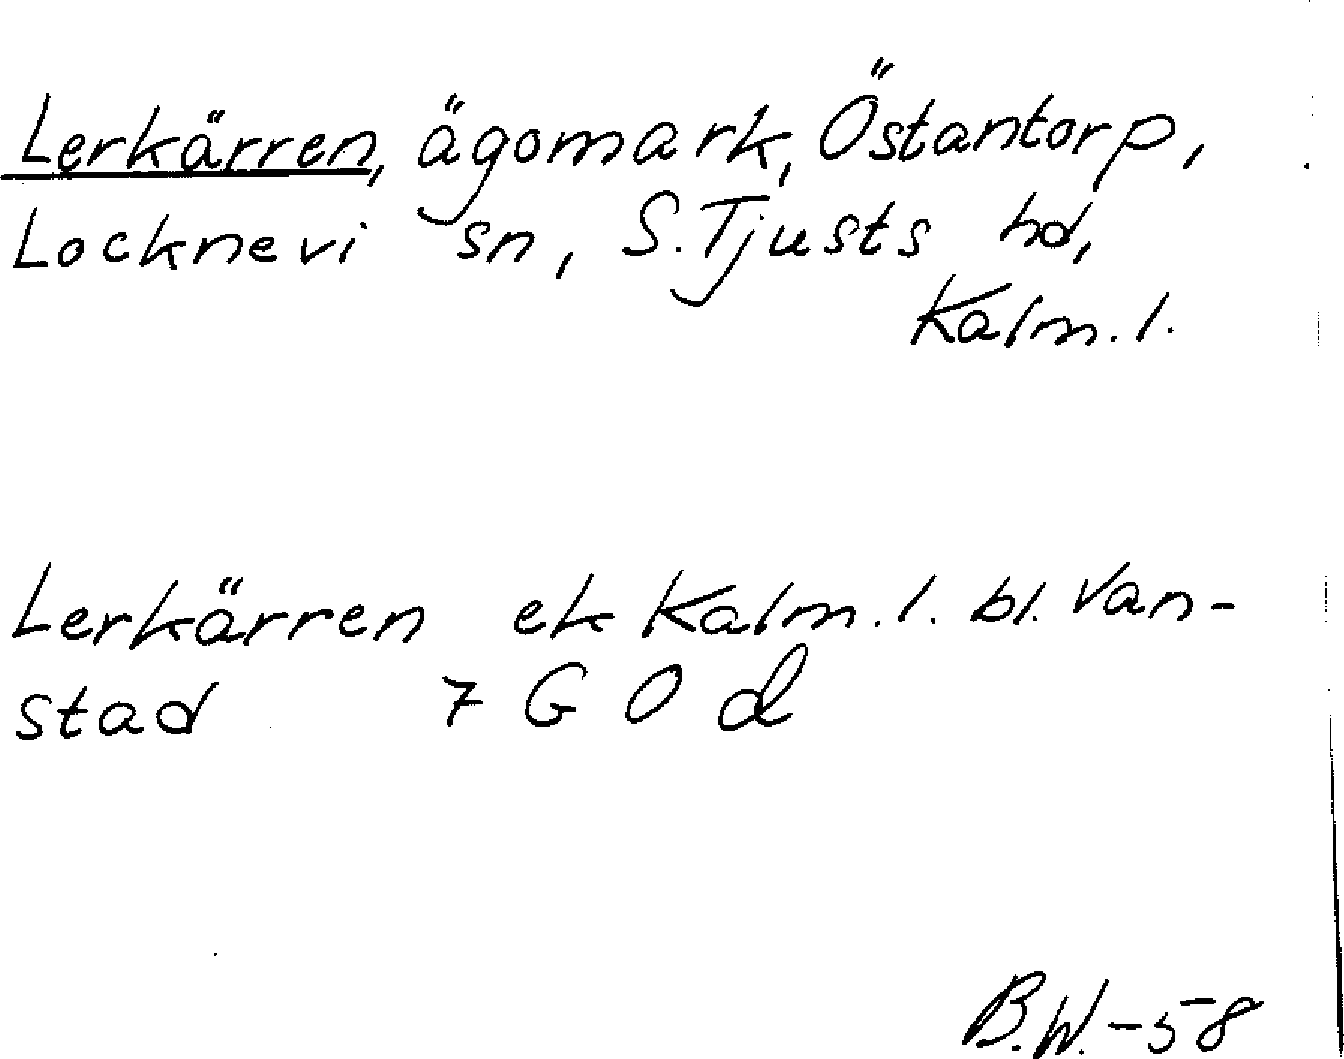 Lerkärren, ägomark, Östantorp,
Locknevi sn, S. Tjusts hd,
Kalm. l.
Lerkärren ek Kalm. l. bl. Van-
stad 7 G O d
B.W.-58